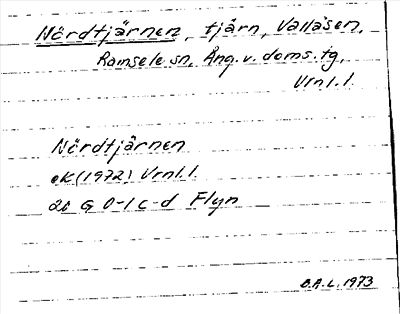 Nördtjärnen, tjärn, Vallåsen,
Ramsele sn, Ång. v. doms. tg,
Vrnl. l.
Nördtjärnen
eK (1972) Vrnl. l.
20 G 0-1 c-d Flyn
B.A.L. 1973